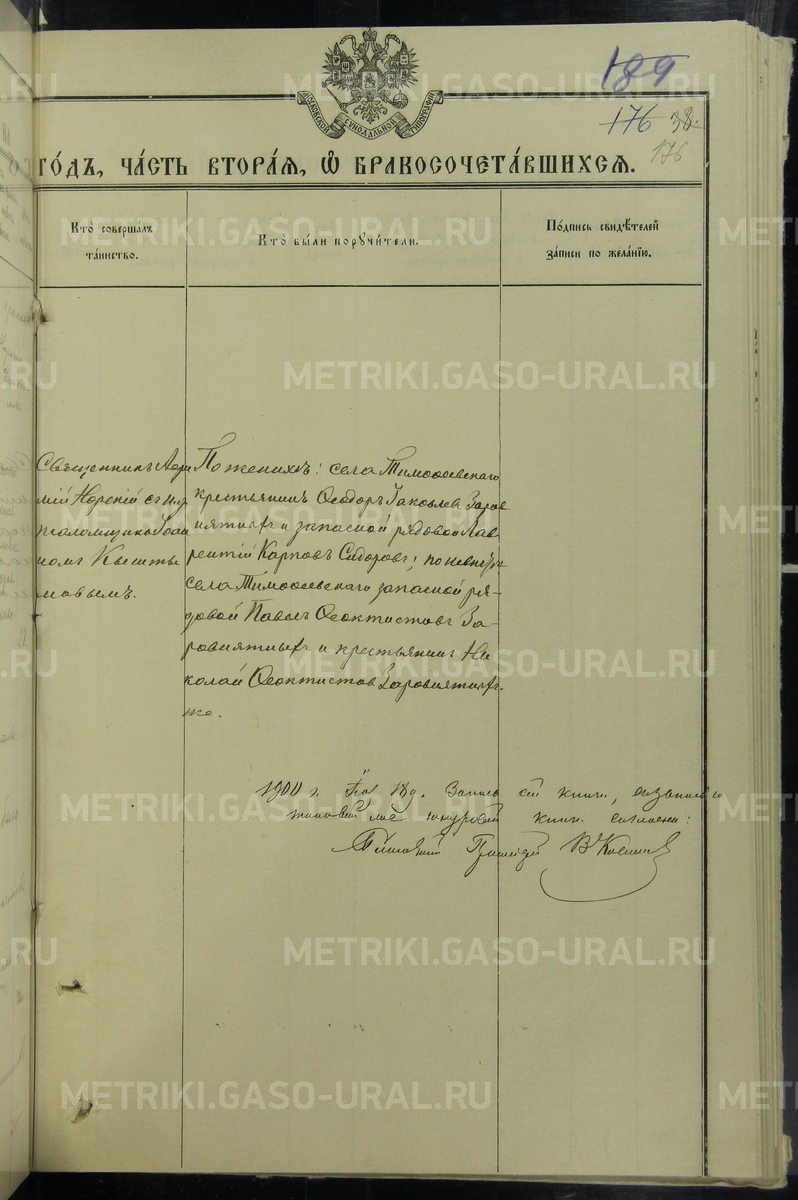 189
176 38.
176
МОСКОВСКОЙ СѴНОДАЛЬНОЙ ТИПОГРАФІИ
ГО́ДЪ, ЧА́СТЬ ВТОРА́Ѧ, Ѡ҆ БРАКОСОЧЕТА́ВШИХСѦ.
Кто̀ соверша́лъ
та́инство.
Кто̀ бы́ли порꙋчи́тели.
По́дпись свидѣ́телей
за́писи по жела́нїю.
Священникъ
мій съ и. д.
псаломщика Іоан
номъ Кышты
мовымъ.
По женихѣ: села Тимоѳеевскаго
крестьянинъ Ѳеодоръ Іаковлев Заров
нятныхъ и запасной рядовой Лав
рентій Карповъ Сидоровъ; по невѣстѣ
села Тимоѳеевскаго запасной ря-
довой Павелъ Ѳеоктистовъ За-
ровнятныхъ и крестьянинъ Ни
колай Ѳеоктистов Заровнятныхъ
же.
1900 г. Запись сей книги, съ записью
книги согласна:
METRIKI.GASO-URAL.RU